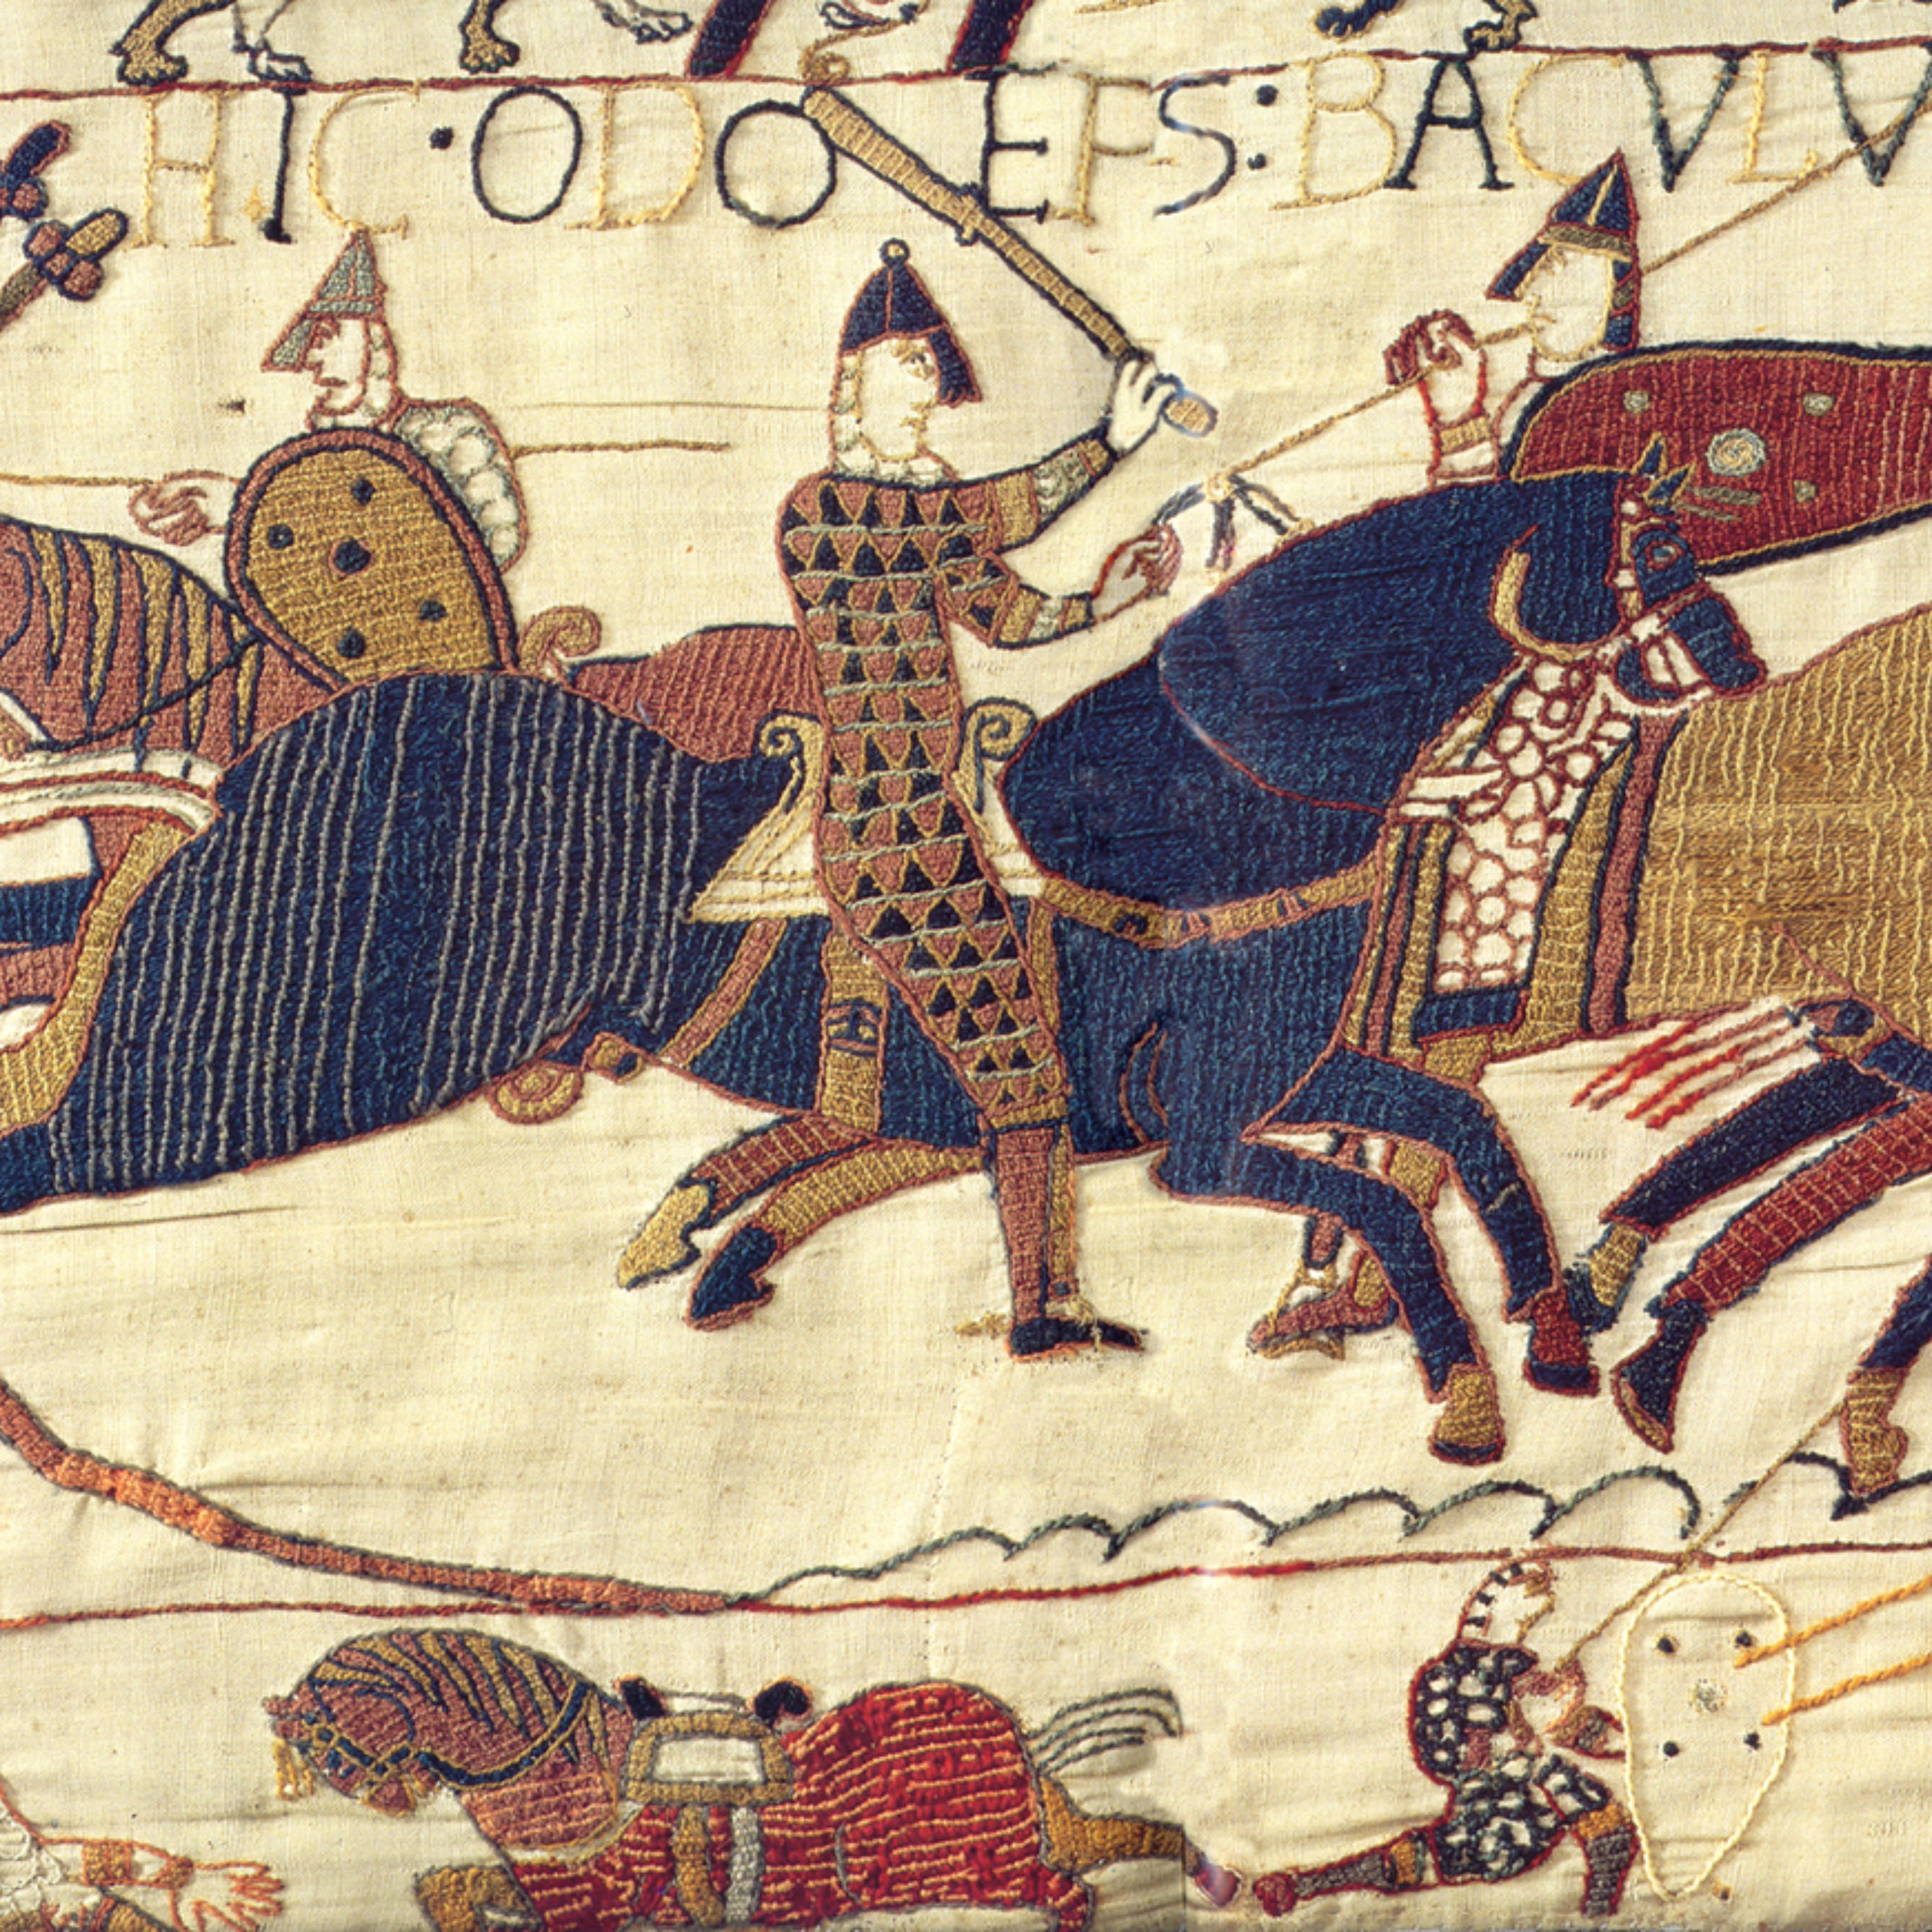 HIC · ODO EPS : BACVLV